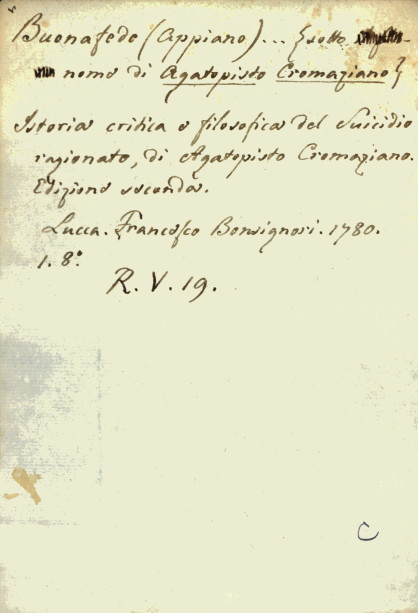 Buonafede (Appiano)... {sotto
nome di Agatopisto Cromaziano}
Istoria critica e filosofica del Suicidio
ragionato, di Agatopisto Cromaziano.
Edizione seconda.
Lucca. Francesco Bonsignori. 1780.
1. 8.º
R. V. 19.
C